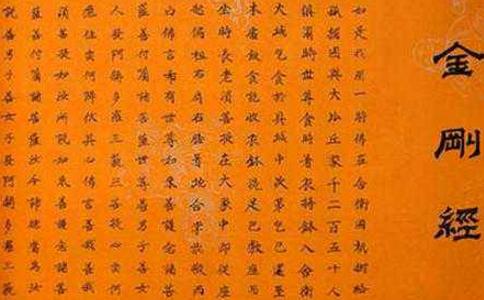 金剛經
如是我聞一時佛在舍衛國祇樹給
孤獨園與大比丘眾千二百五十人
俱爾時世尊食時著衣持鉢入舍衛
大城乞食於其城中次第乞已還至
本處飯食訖收衣鉢洗足已敷座而
坐時長老須菩提在大眾中即從座
起偏袒右肩右膝著地合掌恭敬而
白佛言希有世尊如來善護念諸菩
薩善付囑諸菩薩世尊善男子善女
人發阿耨多羅三藐三菩提心云何
應住云何降伏其心佛言善哉善哉
須菩提如汝所說如來善護念諸菩
薩善付囑諸菩薩汝今諦聽當為汝
說善男子善女人發阿耨多羅三藐